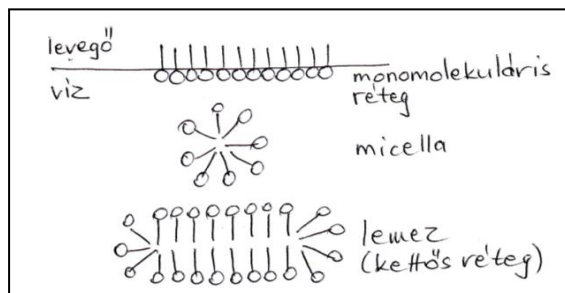 levegő
víz
monomolekuláris
réteg
micella
lemez
(kettős réteg)